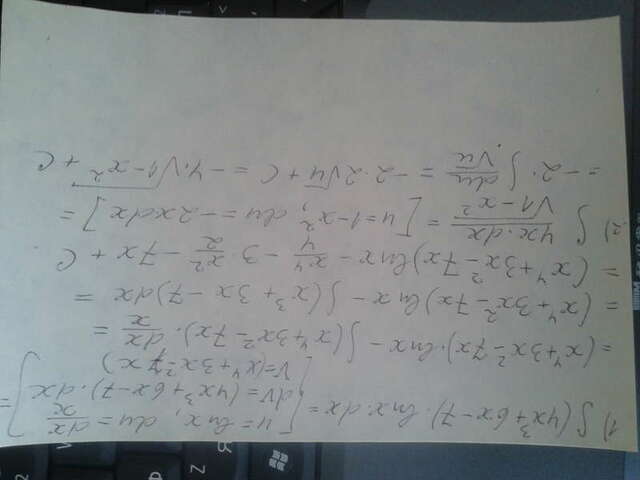 1) ∫(4x³+6x-7)·lnx·dx = [u=lnx, du=dx/x
dv=(4x³+6x-7)·dx
v=(x⁴+3x²-7x)] =
= (x⁴+3x²-7x)·lnx - ∫(x⁴+3x²-7x)·dx/x =
= (x⁴+3x²-7x)lnx - ∫(x³+3x-7)dx =
= (x⁴+3x²-7x)lnx - x⁴/4 - 3·x²/2 - 7x + C
2) ∫ 4x·dx/√1-x² = [u=1-x², du=-2xdx] =
= -2·∫ du/√u = -2·2√u + C = -4·√1-x² + C